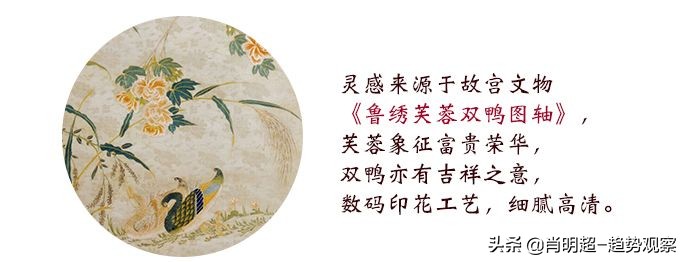 灵感来源于故宫文物
《鲁绣芙蓉双鸭图轴》，
芙蓉象征富贵荣华，
双鸭亦有吉祥之意，
数码印花工艺，细腻高清。
头条 @肖明超-趋势观察